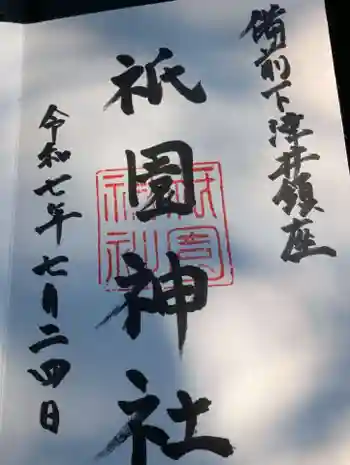 備前下津井鎮座
祇園神社
令和七年七月二四日
祇園
神社